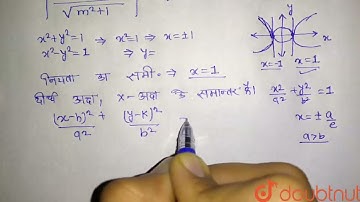 √m²+1
x²+y²=1 ⇒ x²=1 ⇒ x=±1
x²-y²=1 ⇒ y=
नियता का समी० ⇒ x=1
दीर्घ अक्ष, x-अक्ष के समान्तर है।
(x-h)²/a² + (y-k)²/b²
y
x
x=-1 x=1
x²/a²+y²/b²=1
x=±a/e
a>b
doubtnut